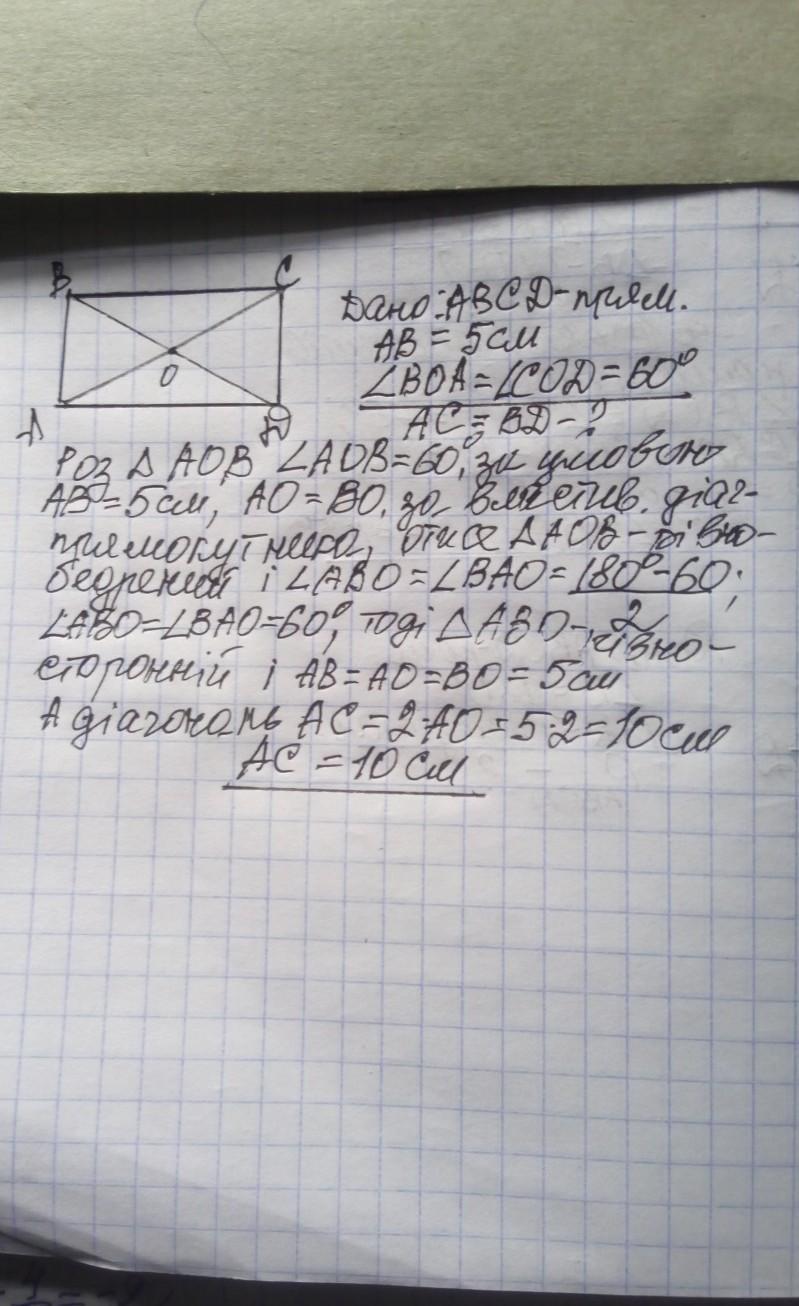 B
C
O
A
D
Дано: ABCD - прям.
AB = 5 см
∠BOA = ∠COD = 60°
AC = BD - ?
Роз △ AOB ∠AOB = 60°, за умовою
AB = 5 см, AO = BO, за властив. діаг-
прямокутника, отже △AOB - рівно-
бедрений і ∠ABO = ∠BAO = 180° - 60 ;
2
∠ABO = ∠BAO = 60°, тоді △ABO - рівно-
сторонній і AB = AO = BO = 5 см
А діагональ AC = 2·AO = 5·2 = 10 см
AC = 10 см